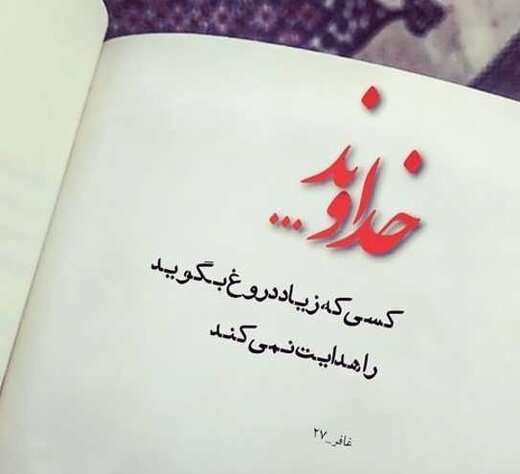 خداوند...
کسی که زیاد دروغ بگوید
را هدایت نمی کند
غافر_۲۷